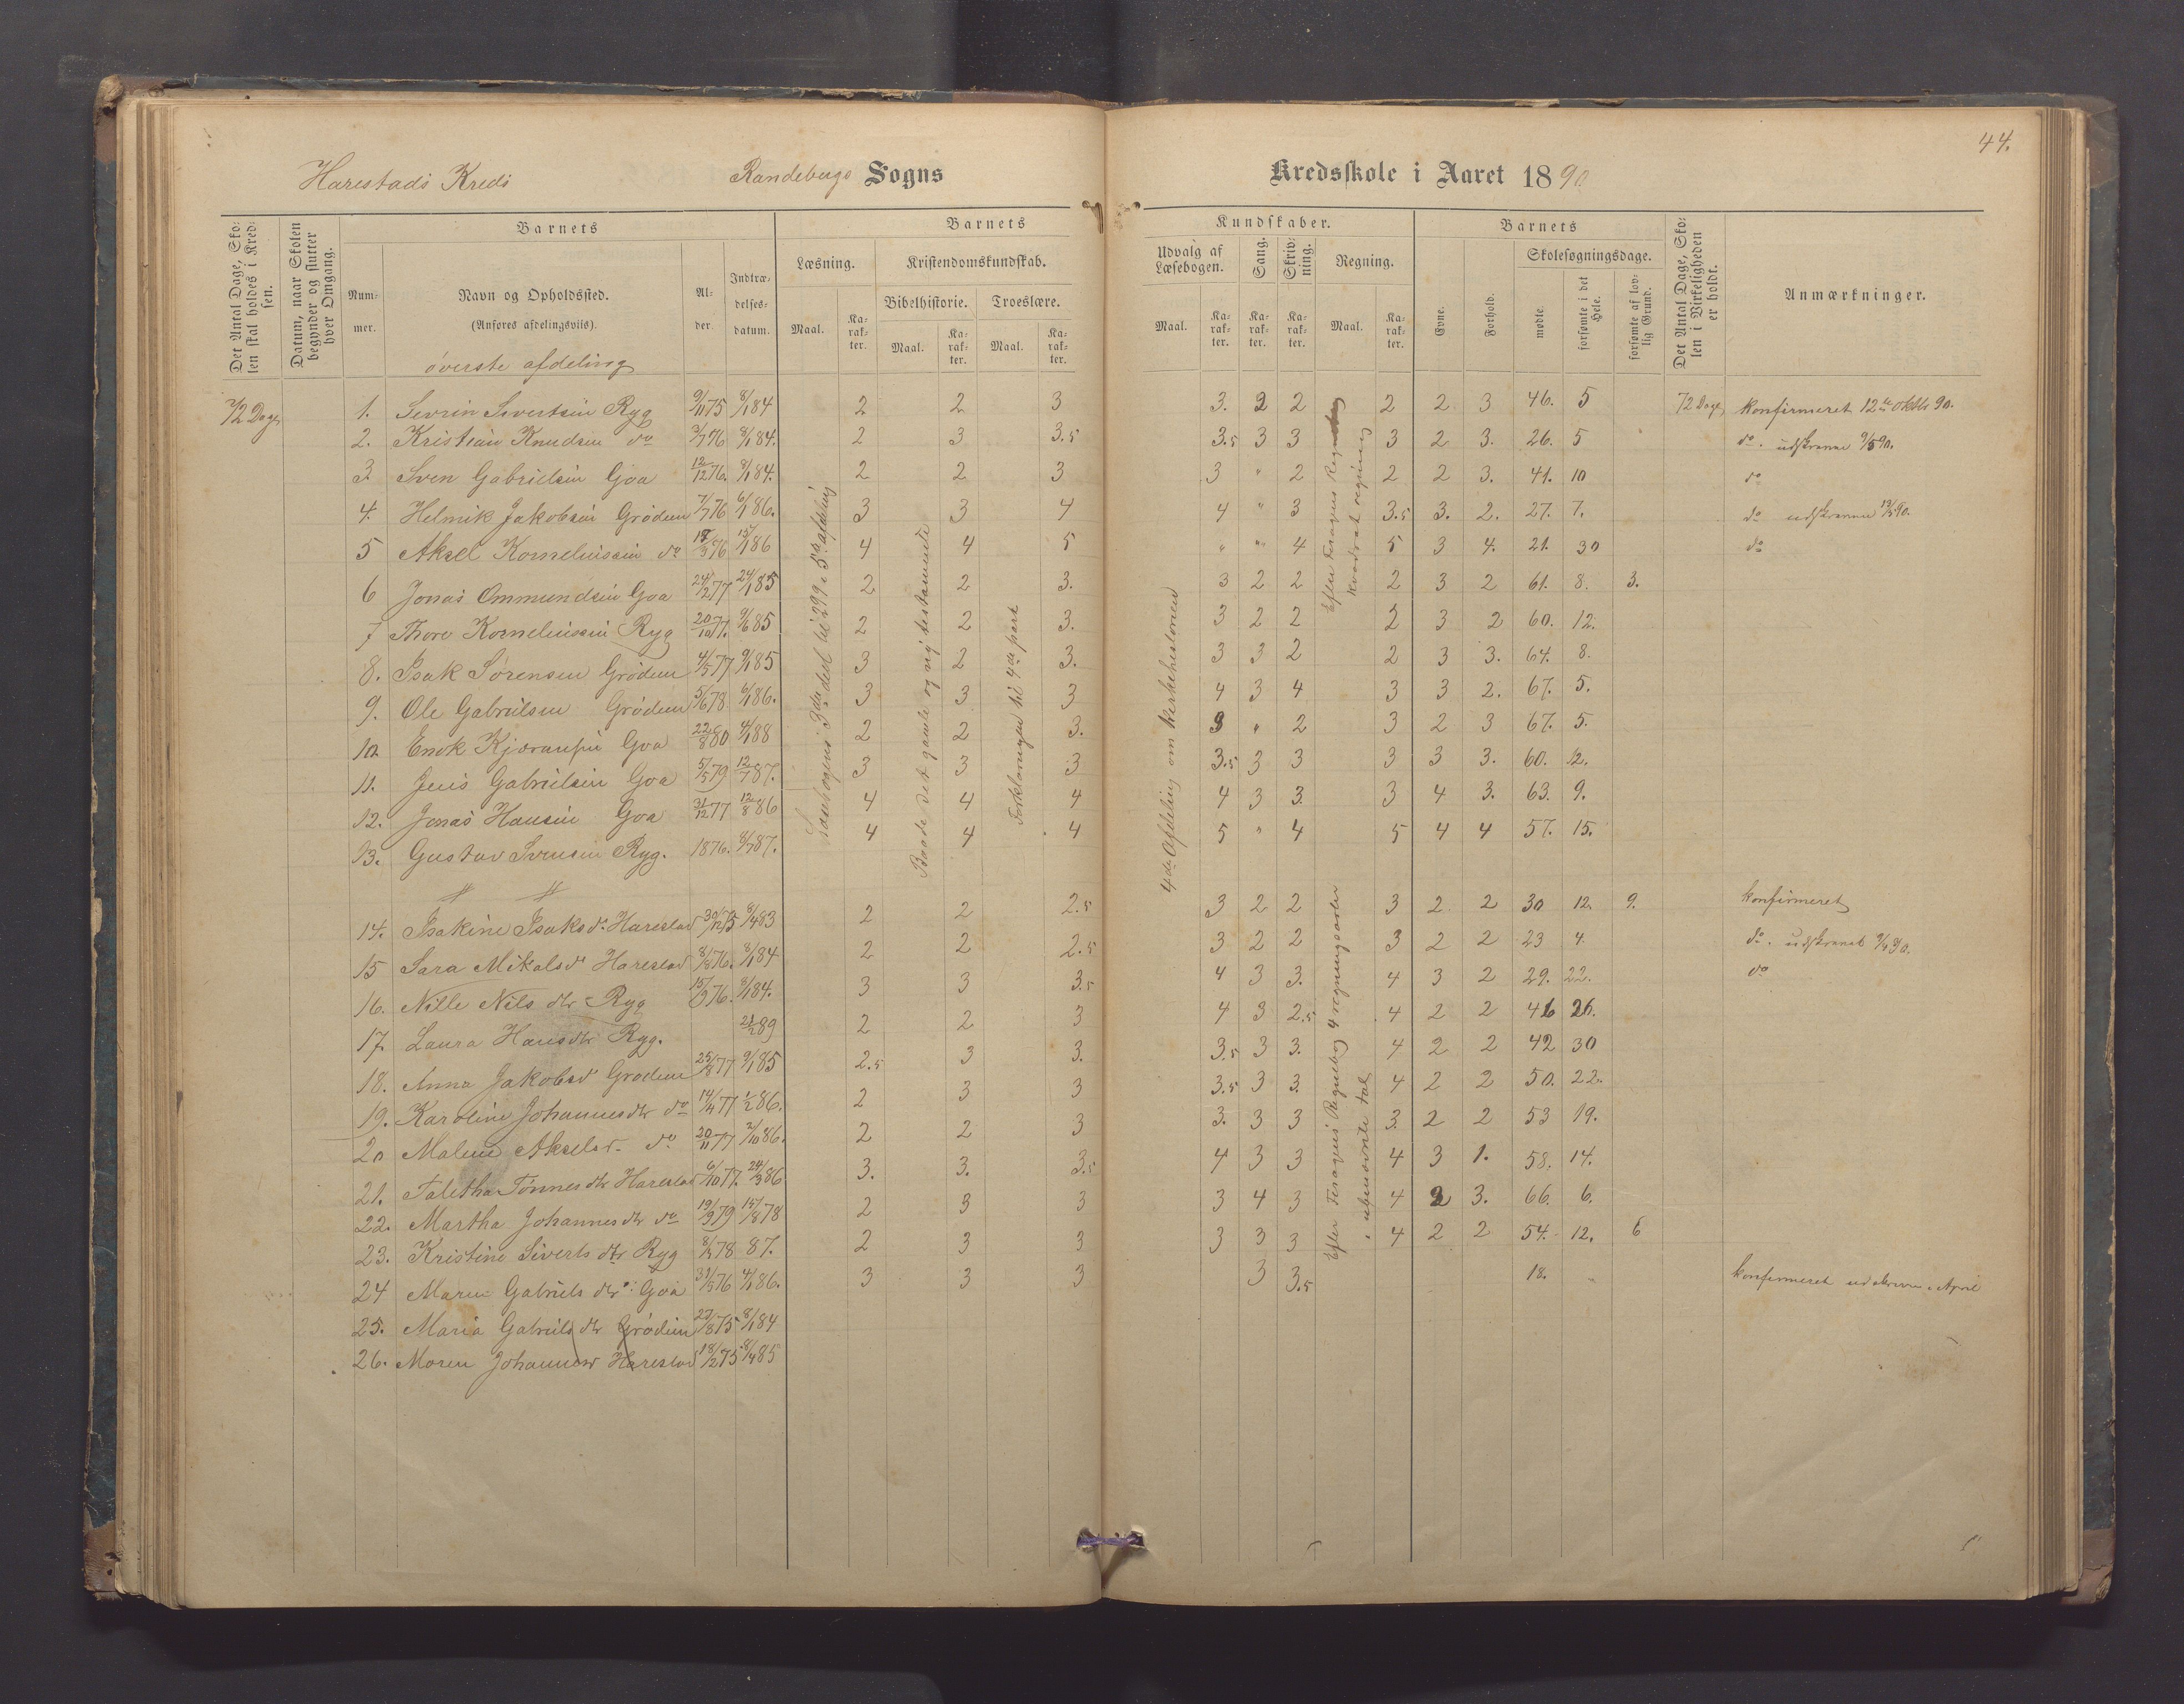 44.
Harestads Kreds Randebergs Sogns Kredsskole i Aaret 1890
Det Antal Dage, Skolen skal holdes i Kredsen.
Datum, naar Skolen begynder og slutter hver Omgang.
Barnets
Nummer.
Navn og Opholdssted.
(Anføres afdelingsvils).
Alder.
Indtrædelsesdatum.
Barnets Kundskaber.
Læsning.
Maal.
Karakter.
Kristendomskundskab.
Bibelhistorie.
Maal.
Karakter.
Troeslære.
Maal.
Karakter.
Udvalg af Læsebogen.
Maal.
Karakter.
Sang.
Karakter.
Skrivning.
Karakter.
Regning.
Maal.
Karakter.
Barnets
Evne.
Forhold.
Skolesøgningsdage.
mødte.
forsømte i det Hele.
forsømte af lovlig Grund.
Det Antal Dage, Skolen i Virkeligheden er holdt.
Anmærkninger.
øverste afdeling
72 Dage 1. Sevrin Sivertsen Ryg 9/11 75 8/1 84 2 2 3 3. 2 2 2 2 3 46. 5 72 Dage konfirmeret 12te oktbr 90.
2. Kristian Knudsen do 3/7 76 8/1 84. 2 3 3.5 3.5 3 3 3 2 3. 26. 5 do. udskreven 9/5 90.
3. Sven Gabrielsen Goa 12/12 76. 8/1 84. 2 2 3 3 " 2 2 2 3. 41. 10 do
4. Helmik Jakobsen Grødem 7/7 76 6/1 86. 3 3 4 4 " 3 3.5 3. 2. 27. 7. do udskreven 90.
5 Aksel Korneliussen do 18/3 76 15/1 86 4 4 5 " " 4 5 3 4. 21. 30 do
6 Jonas Ommundsen Goa 24/2 77 24/1 85 2 2 3. 3 2 2 2 3 2 61. 8. 3.
7 Thore Korneliussen Ryg 20/10 77. 9/6 85 2 2 3. 3 2 2 2 3 2 60. 12.
8. Isak Sørensen Grødem 4/5 77 9/1 85 3 2 3. 3 3 2 2 3 3. 64. 8.
9. Ole Gabrielsen Grødem 5/6 78 6/1 86. 3 3 3 4 3 4 3 3 2. 67. 5.
10. Enok Goa 22/8 80 4/1 88 2 2 3. 3 " 2 3 2 3 67. 5.
11. Jens Gabrielsen Goa 5/5 79 12/7 87. 3 3 3 3.5 3 3 3 3 3. 60. 12.
12. Jonas Hansen Goa 31/12 77 12/8 86 4 4 4 4 3 3. 3 4 3. 63. 9.
13. Gustav Svensen Ryg. 1876. 8/7 87. 4 4 4 5 " 4 5 4 4 57. 15.
14. Isakine Isaksd. Harestad 30/12 75 8/4 83 2 2 2.5 3 2 2 3 2 2 30 12. 9. konfirmeret
15 Sara Mikalsd Harestad 8/8 76. 8/1 84 2 2 2.5 3 2 2 3 2 2 23 4. do. udskrevet
16. Nille Nils dtr Ryg 15/9 76. 8/1 84. 3 3 3.5 4 3 3. 4 3 2 29. 22. do
17. Laura Hans dtr Ryg. 21/2 89 2 2 3 4 3 2.5 4 2 2 46 26.
18. Anna Jakobsd Grødem 25/8 77 9/1 85 2.5 3 3. 3.5 3 3. 4 2 2 42 30
19. Karoline Johannesdtr do 14/4 77 1/2 86. 2 3 3 3.5 3 3. 4 2 2 50. 22.
20 Malene Akselsd. do 20/11 77 2/10 86. 2 2 3 3. 3 3 3. 2 2 53 19.
21. Taletha Tønnes dtr Harestad 6/10 77. 24/3 86 3. 3. 3.5 4 3 3 4 3 1. 58. 14.
22. Martha Johannes dtr do 19/9 79 15/8 78 2 3 3 3 4 3 4 3 3. 66. 6.
23. Kristine Siverts dtr Ryg 8/4 78 87. 2 3 3 3 3 3 4 2 2 54. 12. 6
24 Maren Gabriels dtr Goa 31/5 76 4/1 86. 3 3 3 3 3.5 18. konfirmeret udskreven i April
25. Maria Gabriels dtr Grødem 23/8 75 8/1 84
26. Maren Harestad 18/2 75 8/4 85
Læsebogens 3die deel til 299 i 5te afdeling
Baade det gamle og ny testamente
Forklaringen til 4de part
4de Afdeling om kirkehistorien
Efter regning
Kvadratregning
Efter Regnebog 4 regningsarter
i ubenævnte tal